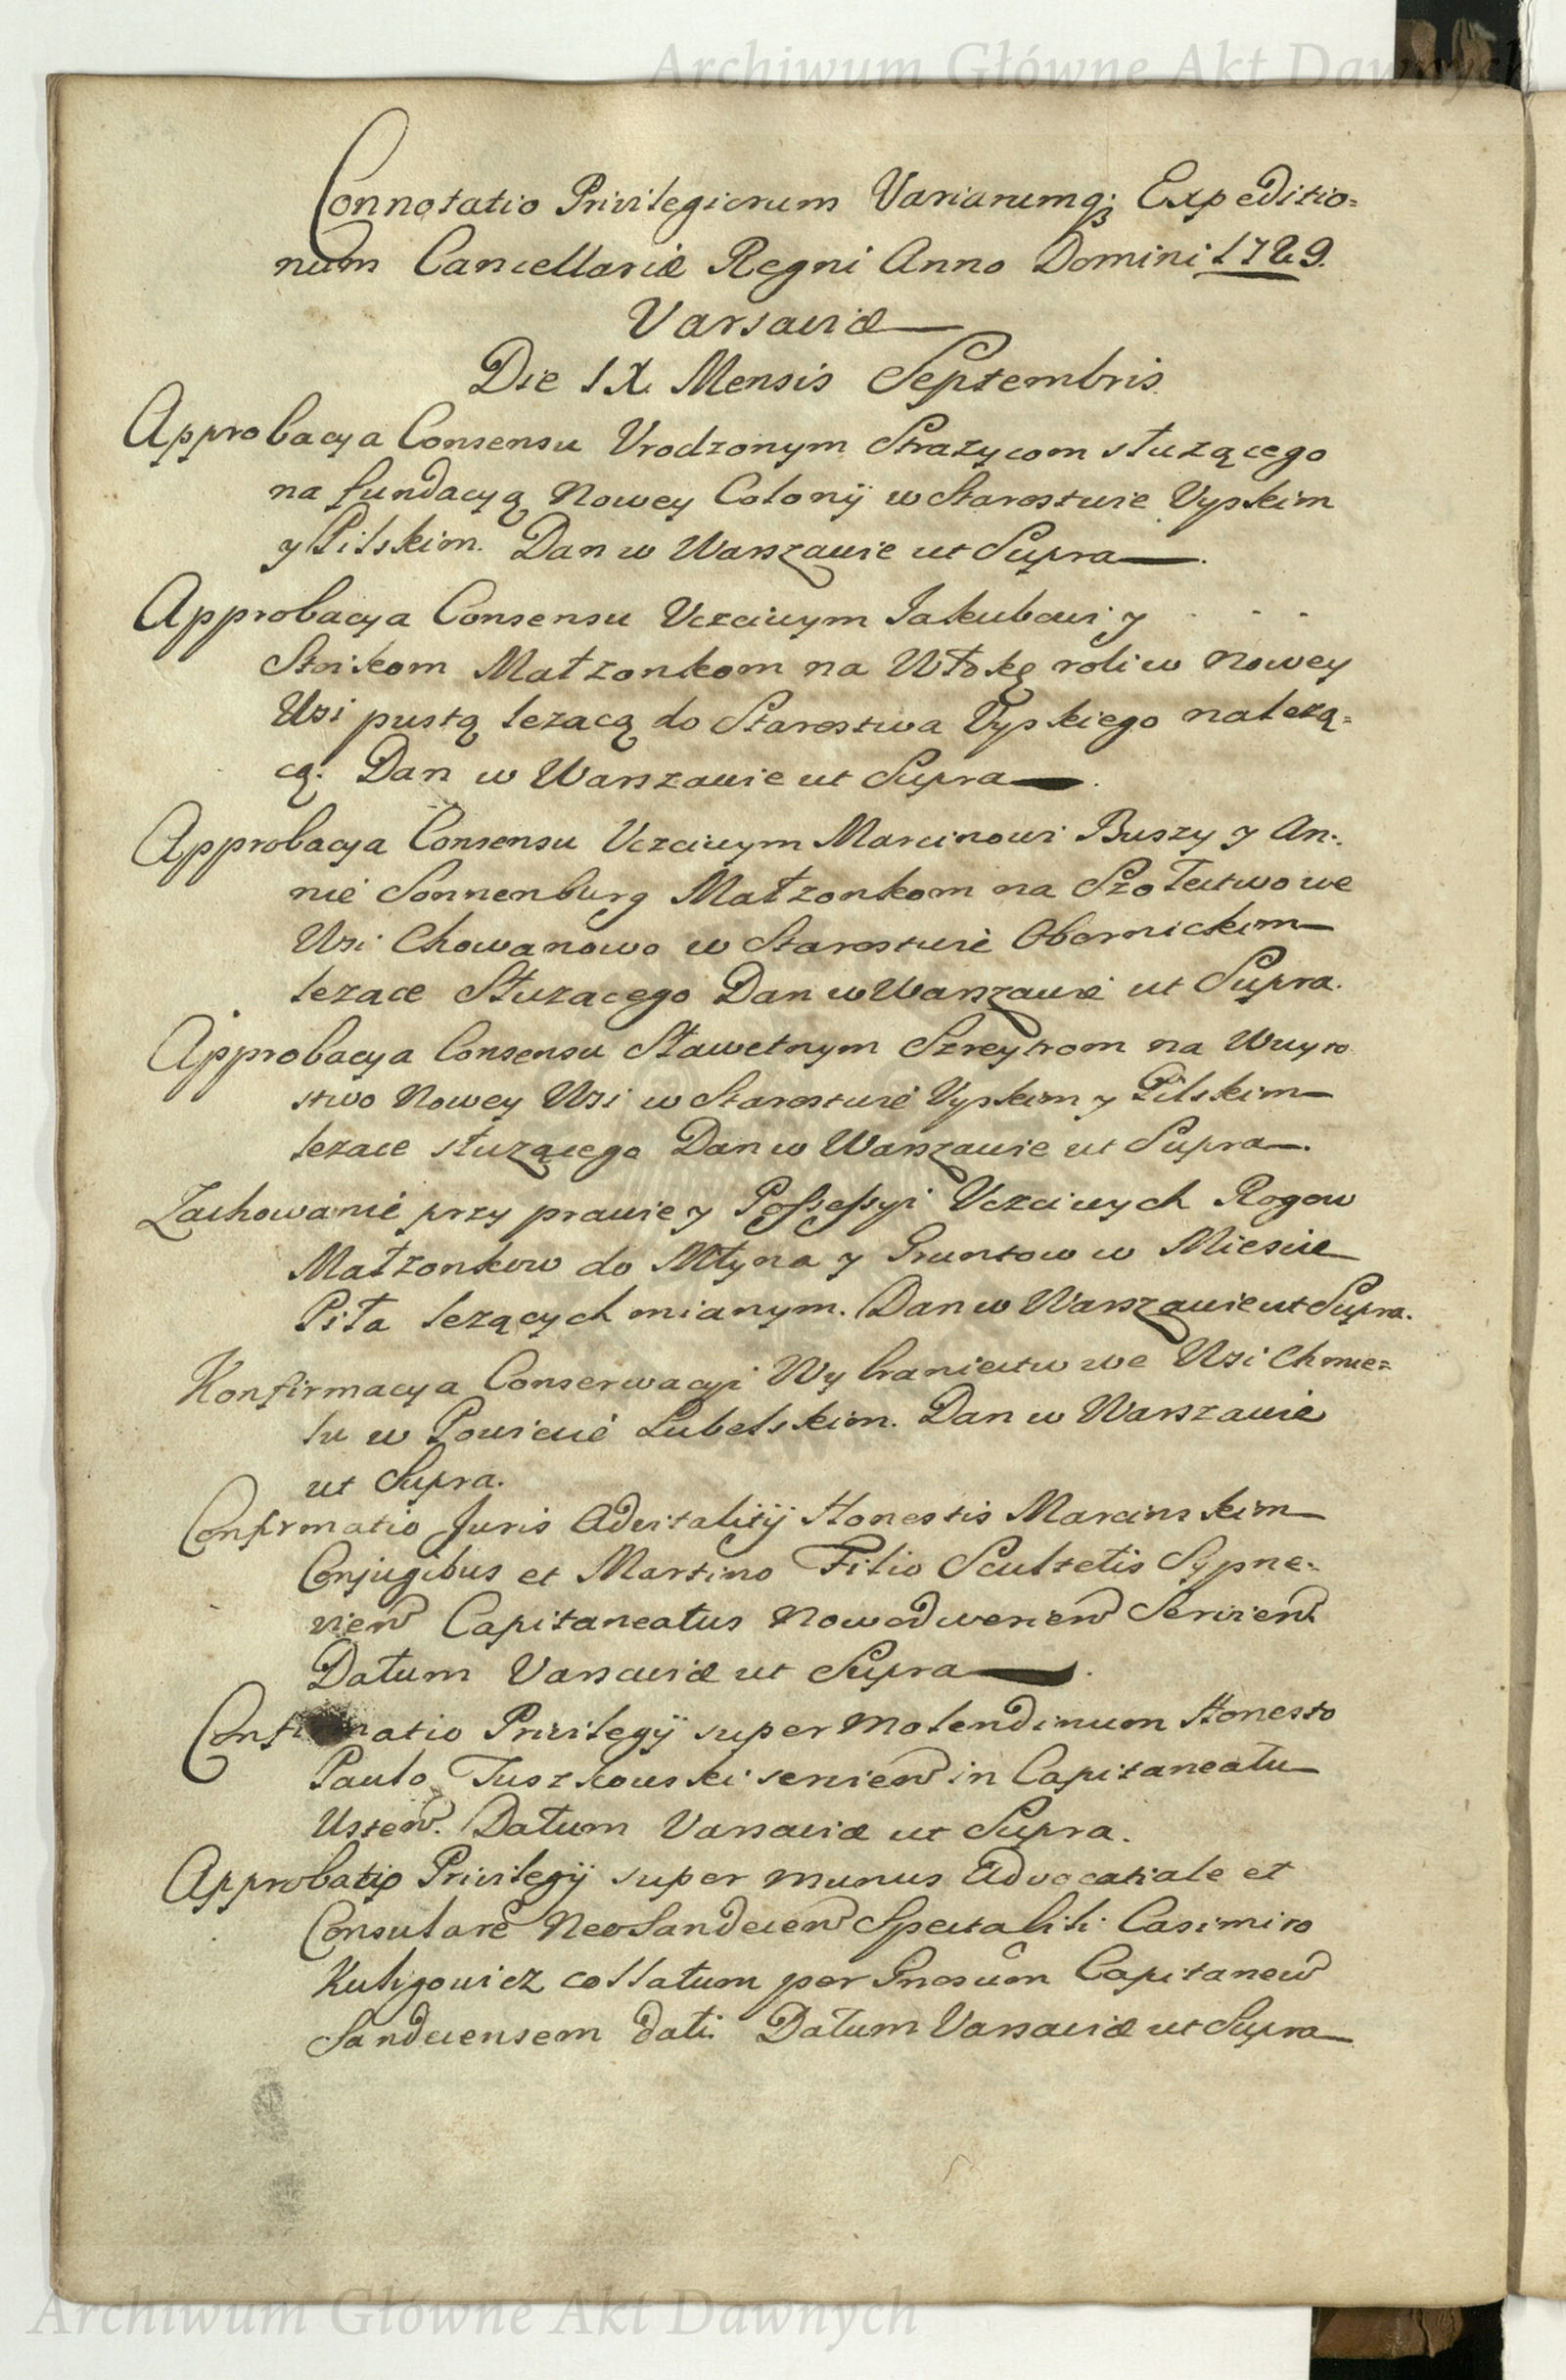 Archiwum Główne Akt Dawnych
Connotatio Privilegiorum Variarumq; Expeditio=
num Cancellariæ Regni Anno Domini 1729.
Varsaviæ
Die IX Mensis Septembris.
Approbacya Consensu Vrodzonym Strazycom słuzącego
na fundacyą Nowey Colonij w Starostwie Vyskim
y Pilskim. Dan w Warszawie ut Supra.
Approbacya Consensu Vczciwym Iakubowi y - -
Stoikom Małzonkom na Włokę roli w Nowey
Wsi pustą lezacą do Starostwa Vyskiego nalezą=
cą. Dan w Warszawie ut Supra.
Approbacya Consensu Vczciwym Marcinowi Buszy y An:
nie Sonnenburg Małzonkom na Szołectwo we
Wsi Chowanowo w Starostwie Obornickim
lezace Słuzacego Dan w Warszawie ut Supra.
Approbacya Consensu Sławetnym Szreytrom na
stwo Nowey Wsi w Starostwie Vyskim y Pilskim
lezace słuzącego Dan w Warszawie ut Supra.
Zachowanie przy prawie y Possessyi Vczciwych Rogow
Małzonkow do Młyna y Gruntow w Miescie
Piła lezących mianym. Dan w Warszawie ut Supra.
Konfirmacya Conserwacyi Wybraniectw we Wsi Chmie=
lu w Powiecie Lubelskim. Dan w Warszawie
ut Supra.
Confirmatio Juris Advitalitij Honestis Marcinskim
Conjugibus et Martino Filio Scultetis Sypne:
vien Capitaneatus Nowodworien Servien
Datum Varsaviæ ut Supra.
Confirmatio Privilegij super Molendinum Honesto
Paulo Tuszkowski servien in Capitaneatu
Usten. Datum Varsaviæ ut Supra.
Approbatio Privilegij super munus Advocatiale et
Consulare NeoSandecen Spectabili Casimiro
Kuligowicz collatum per Gnosum Capitaneu
Sandecensem dati. Datum Varsaviæ ut Supra
Archiwum Główne Akt Dawnych